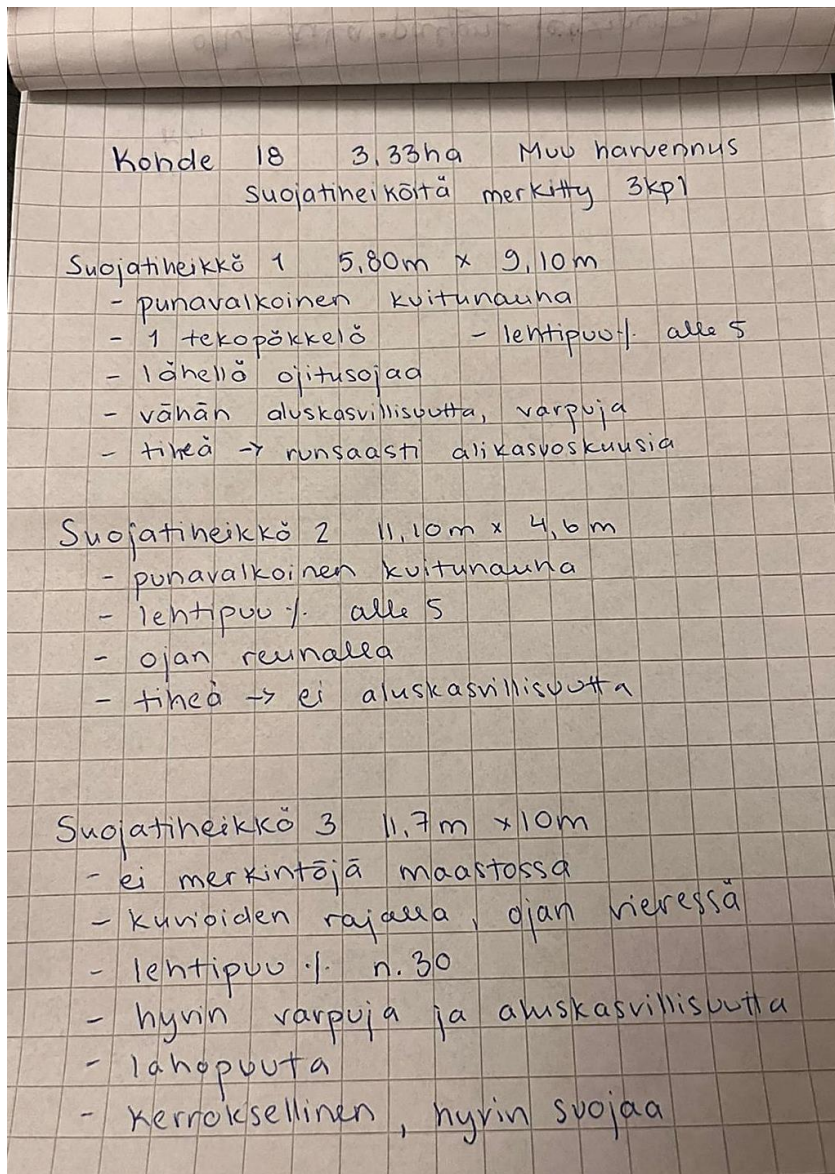 Kohde 18 3,33ha Muu harvennus
Suojatiheiköitä merkitty 3kpl
Suojatiheikkö 1 5,80m x 9,10m
- punavalkoinen kuitunauha
- 1 tekopökkelö - lehtipuu % alle 5
- lähellä ojitusojaa
- vähän aluskasvillisuutta, varpuja
- tiheä -> runsaasti alikasvoskuusia
Suojatiheikkö 2 11,10m x 4,6m
- punavalkoinen kuitunauha
- lehtipuu % alle 5
- ojan reunalla
- tiheä -> ei aluskasvillisuutta
Suojatiheikkö 3 11,7m x 10m
- ei merkintöjä maastossa
- kuvioiden rajalla, ojan vieressä
- lehtipuu % n. 30
- hyvin varpuja ja aluskasvillisuutta
- lahopuuta
- kerroksellinen, hyvin suojaa